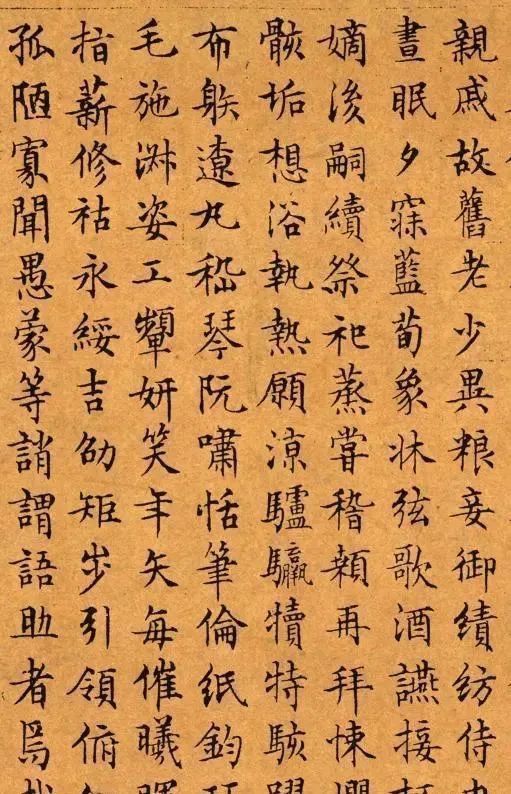 親戚故舊老少異粮妾御績紡侍
晝眠夕寐藍荀象牀弦歌酒讌接
嫡後嗣續祭祀蒸甞稽顙再拜悚
骸垢想浴執熱願涼驢驘犢特駭
布射遼丸嵇琴阮嘯恬筆倫紙鈞
毛施淑姿工顰妍笑年矢每催曦
指薪修祜永綏吉劭矩步引領俯
孤陋寡聞愚蒙等誚謂語助者焉